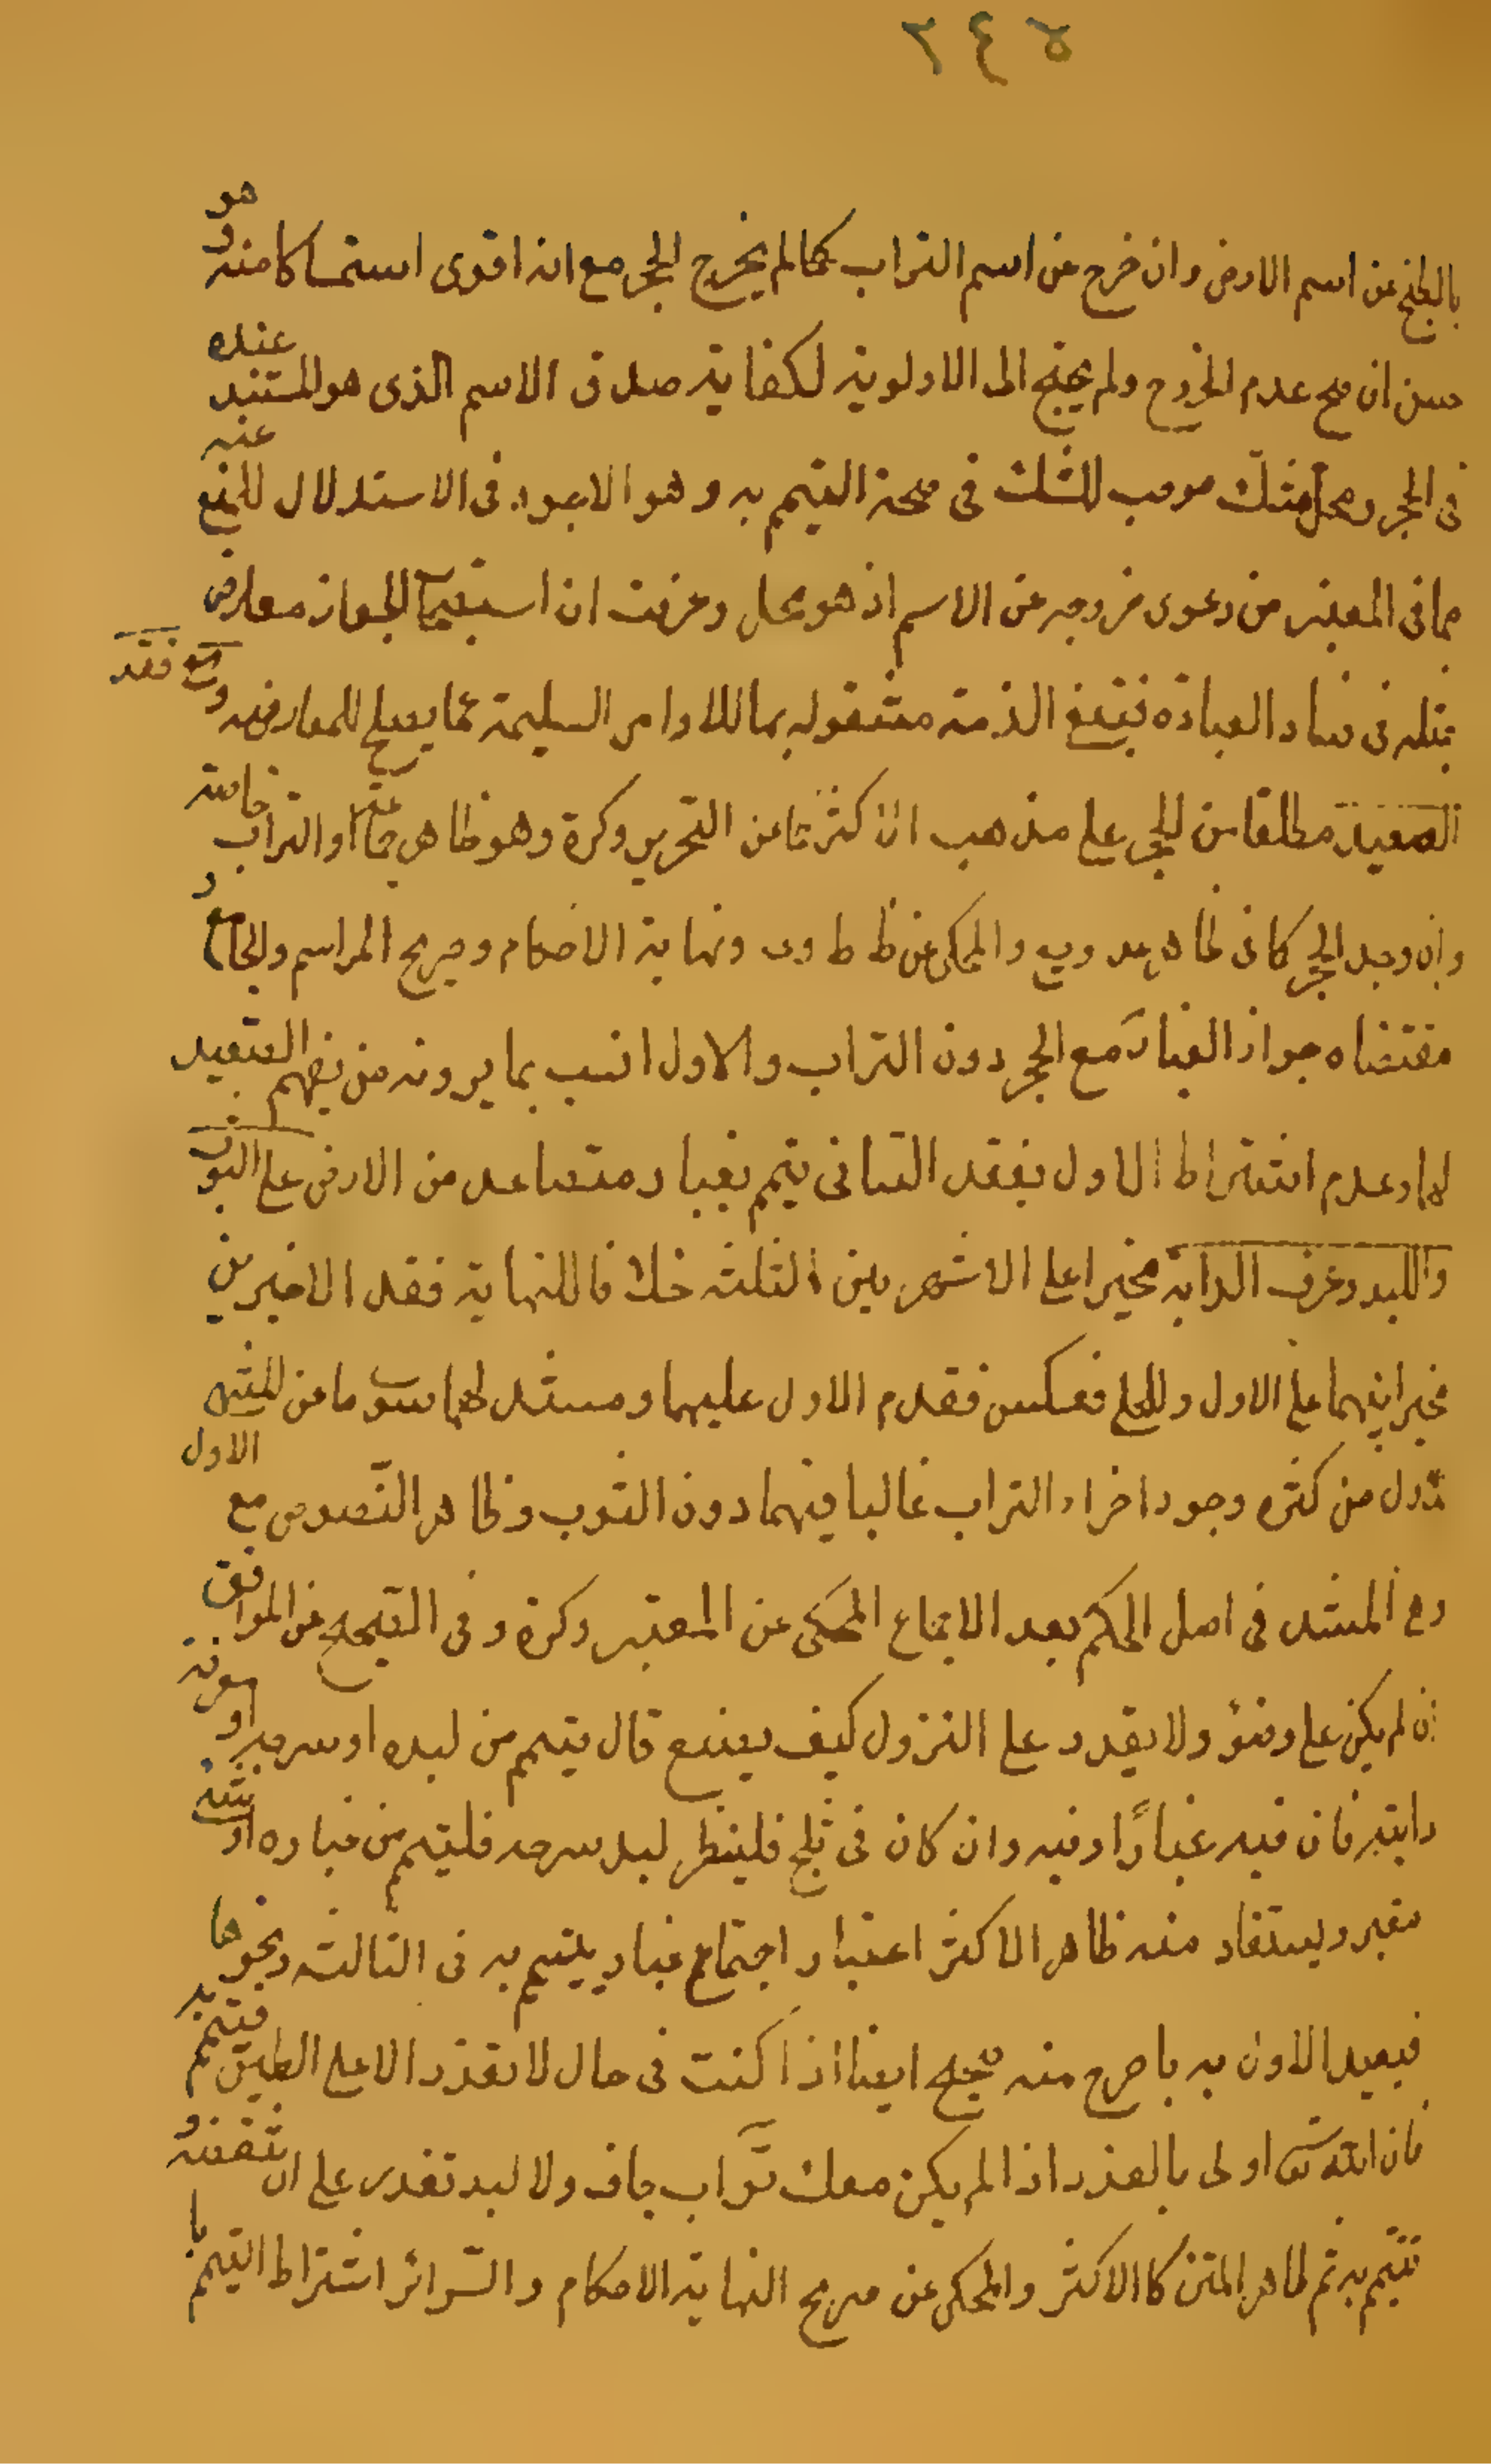 ٢٤٥
بالطبخ عن اسم الارض وان خرج عن اسم التراب كما لم يخرج الحجر مع انه اقوى استمساكا منه وهو
حسن ان صح عدم الخروج ولم يحتج الى الاولوية لكفاية صدق الاسم الذى هو المستند عنده
فى الحجر ومحل شك موجب للشك فى صحة التيمم به وهو الاجود فى الاستدلال للمنع عنه
مما فى المعتبر من دعوى خروجه عن الاسم اذ هو محل وعرفت ان استصحاب الجواز معارض
بمثله فى فساد العبادة فتبقى الذمة مشغوله بما للاوامر السليمة عما يصلح للمعارضه ومع فقد
الصعيد مطلقا من الحجر على مذهب الاكثر كما عن التحرير وكرة وهو ظاهر جماعة او التراب خاصة
وان وجد الحجر كما فى ظاهر عد ويع والمحكى عن ظ ط وب ونهاية الاحكام وصريح المراسم والجامع و
مقتضاه جواز الغبار مع الحجر دون التراب والاول انسب بما يرونه من فهم الصعيد
لهما وعدم اشتراط الاول بفقد الثانى يتمم بغبار متصاعد من الارض على الثوب
واللبد وعرف الدابة مخيرا على الاشهر بين الثلثه خلافا للنهاية فقدم الاخيرين
مخيرا بينهما على الاول وللحلى فعكس فقدم الاول عليهما ومستند لهما سوى ما عن المنتهى
للاول من كثره وجود اخراء التراب غالبا فيهما دون الثوب وظاهر النصوص مع الاول
وهى المستند فى اصل الحكم بعد الاجماع المحكى عن المعتبر وكرة وفى الصحيح عن المواقف
ان لم يكن على وضؤ ولا يقدر على النزول كيف يصنع قال يتيمم من لبده او سرجه او معرفة
دابته فان فيه غبارًا وفيه وان كان فى ثلج فلينظر لبد سرجه فليتيمم من غباره او شئ
مغبر ويستفاد منه ظاهر الاكثر اعتبار اجتماع غبار يتيمم به فى الثالثه ونحوها
فيعيد الاول به باصرح منه صحيح ايضا اذا كنت فى حال لا تقدر الا على الطين فتيمم به
فان الله تع اولى بالعذر اذا لم يكن معك تراب جاف ولا لبد تقدر على ان تنفضه و
تتيمم به ثم ظاهر المتن كالاكثر والمحكى عن صريح النهاية الاحكام والسرائر اشتراط التيمم با